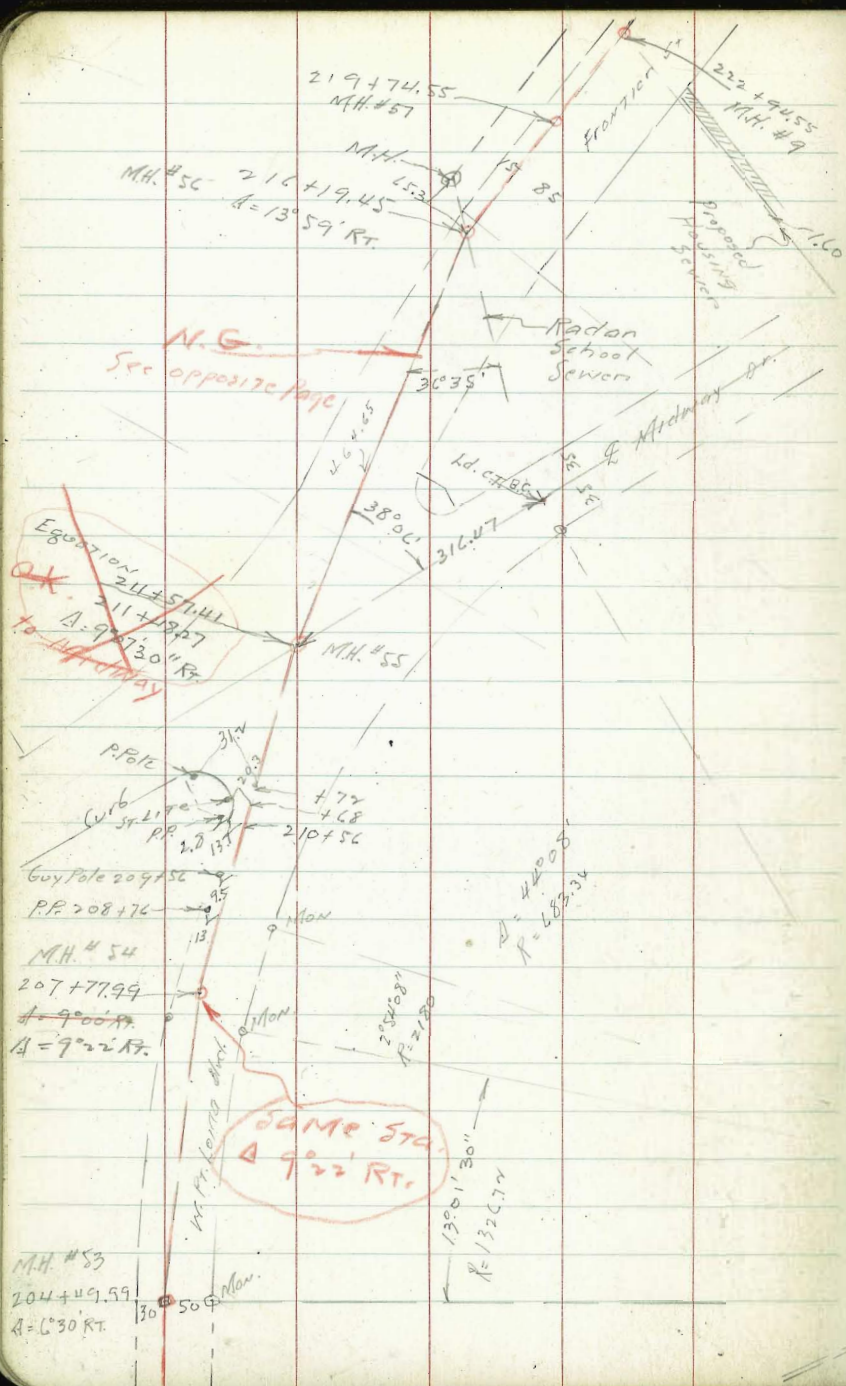 219+74.55
M.H. #57
5'
222+94.55
M.H. #9
Frontier
M.H.
65.3
15
85
M.H. #56
216+19.45
Δ=13°59' RT.
Proposed
Housing
Sewer
1.60
N.G.
See opposite Page
Radar
School
Sewer
36°35'
464.65
℄ Midway Dr.
35
35
38°06'
316.47
Equation
211+57.41
211+48.27
Δ=9°07'30" RT.
O.K.
M.H. #55
P.Pole
31.2
20.3
Curb
ST. LITE
P.P.
2.8
13.5
+72
+68
210+56
Guy Pole 209+56
9.5
P.P. 208+76
13
Mon
Δ=44°08'
R=683.34
M.H. #54
207+77.99
Δ=9°00' RT.
Δ=9°22' RT.
Mon.
2°54'08"
R=2180
W. Pt. Loma Blvd.
Same Sta.
Δ 9°22' RT.
13°01'30"
R=1326.72
M.H. #53
204+49.99
Δ=6°30' RT.
30
50
Mon.